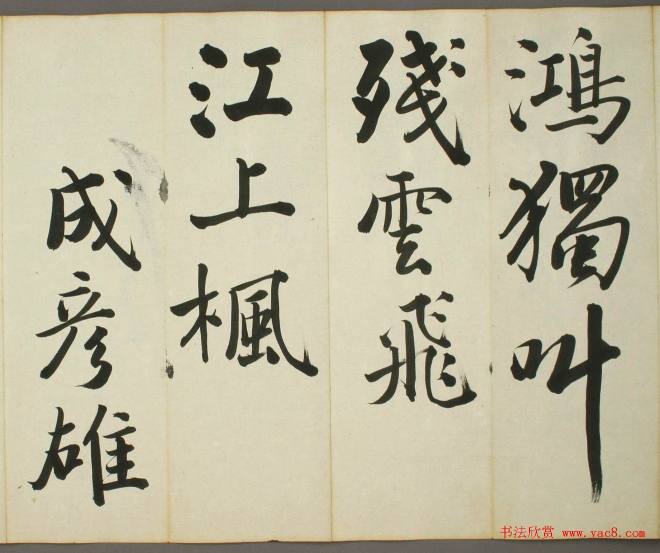 鴻獨叫
殘雲飛
江上楓
成彦雄
书法欣赏 www.yac8.com